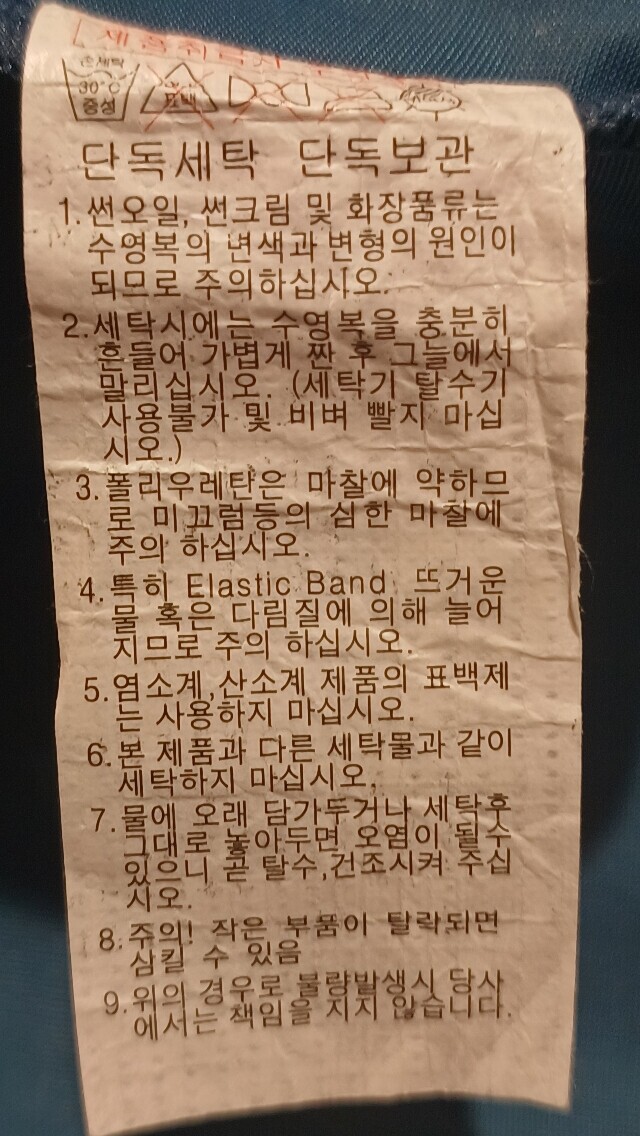 제품취급시
손세탁
30°C
중성
표백
단독세탁 단독보관
1. 썬오일, 썬크림 및 화장품류는
수영복의 변색과 변형의 원인이
되므로 주의하십시오.
2. 세탁시에는 수영복을 충분히
흔들어 가볍게 짠 후 그늘에서
말리십시오. (세탁기 탈수기
사용불가 및 비벼 빨지 마십
시오.)
3. 폴리우레탄은 마찰에 약하므
로 미끄럼등의 심한 마찰에
주의 하십시오.
4. 특히 Elastic Band 뜨거운
물 혹은 다림질에 의해 늘어
지므로 주의 하십시오.
5. 염소계,산소계 제품의 표백제
는 사용하지 마십시오.
6. 본 제품과 다른 세탁물과 같이
세탁하지 마십시오.
7. 물에 오래 담가두거나 세탁후
그대로 놓아두면 오염이 될수
있으니 곧 탈수,건조시켜 주십
시오.
8. 주의! 작은 부품이 탈락되면
삼킬 수 있음
9. 위의 경우로 불량발생시 당사
에서는 책임을 지지 않습니다.